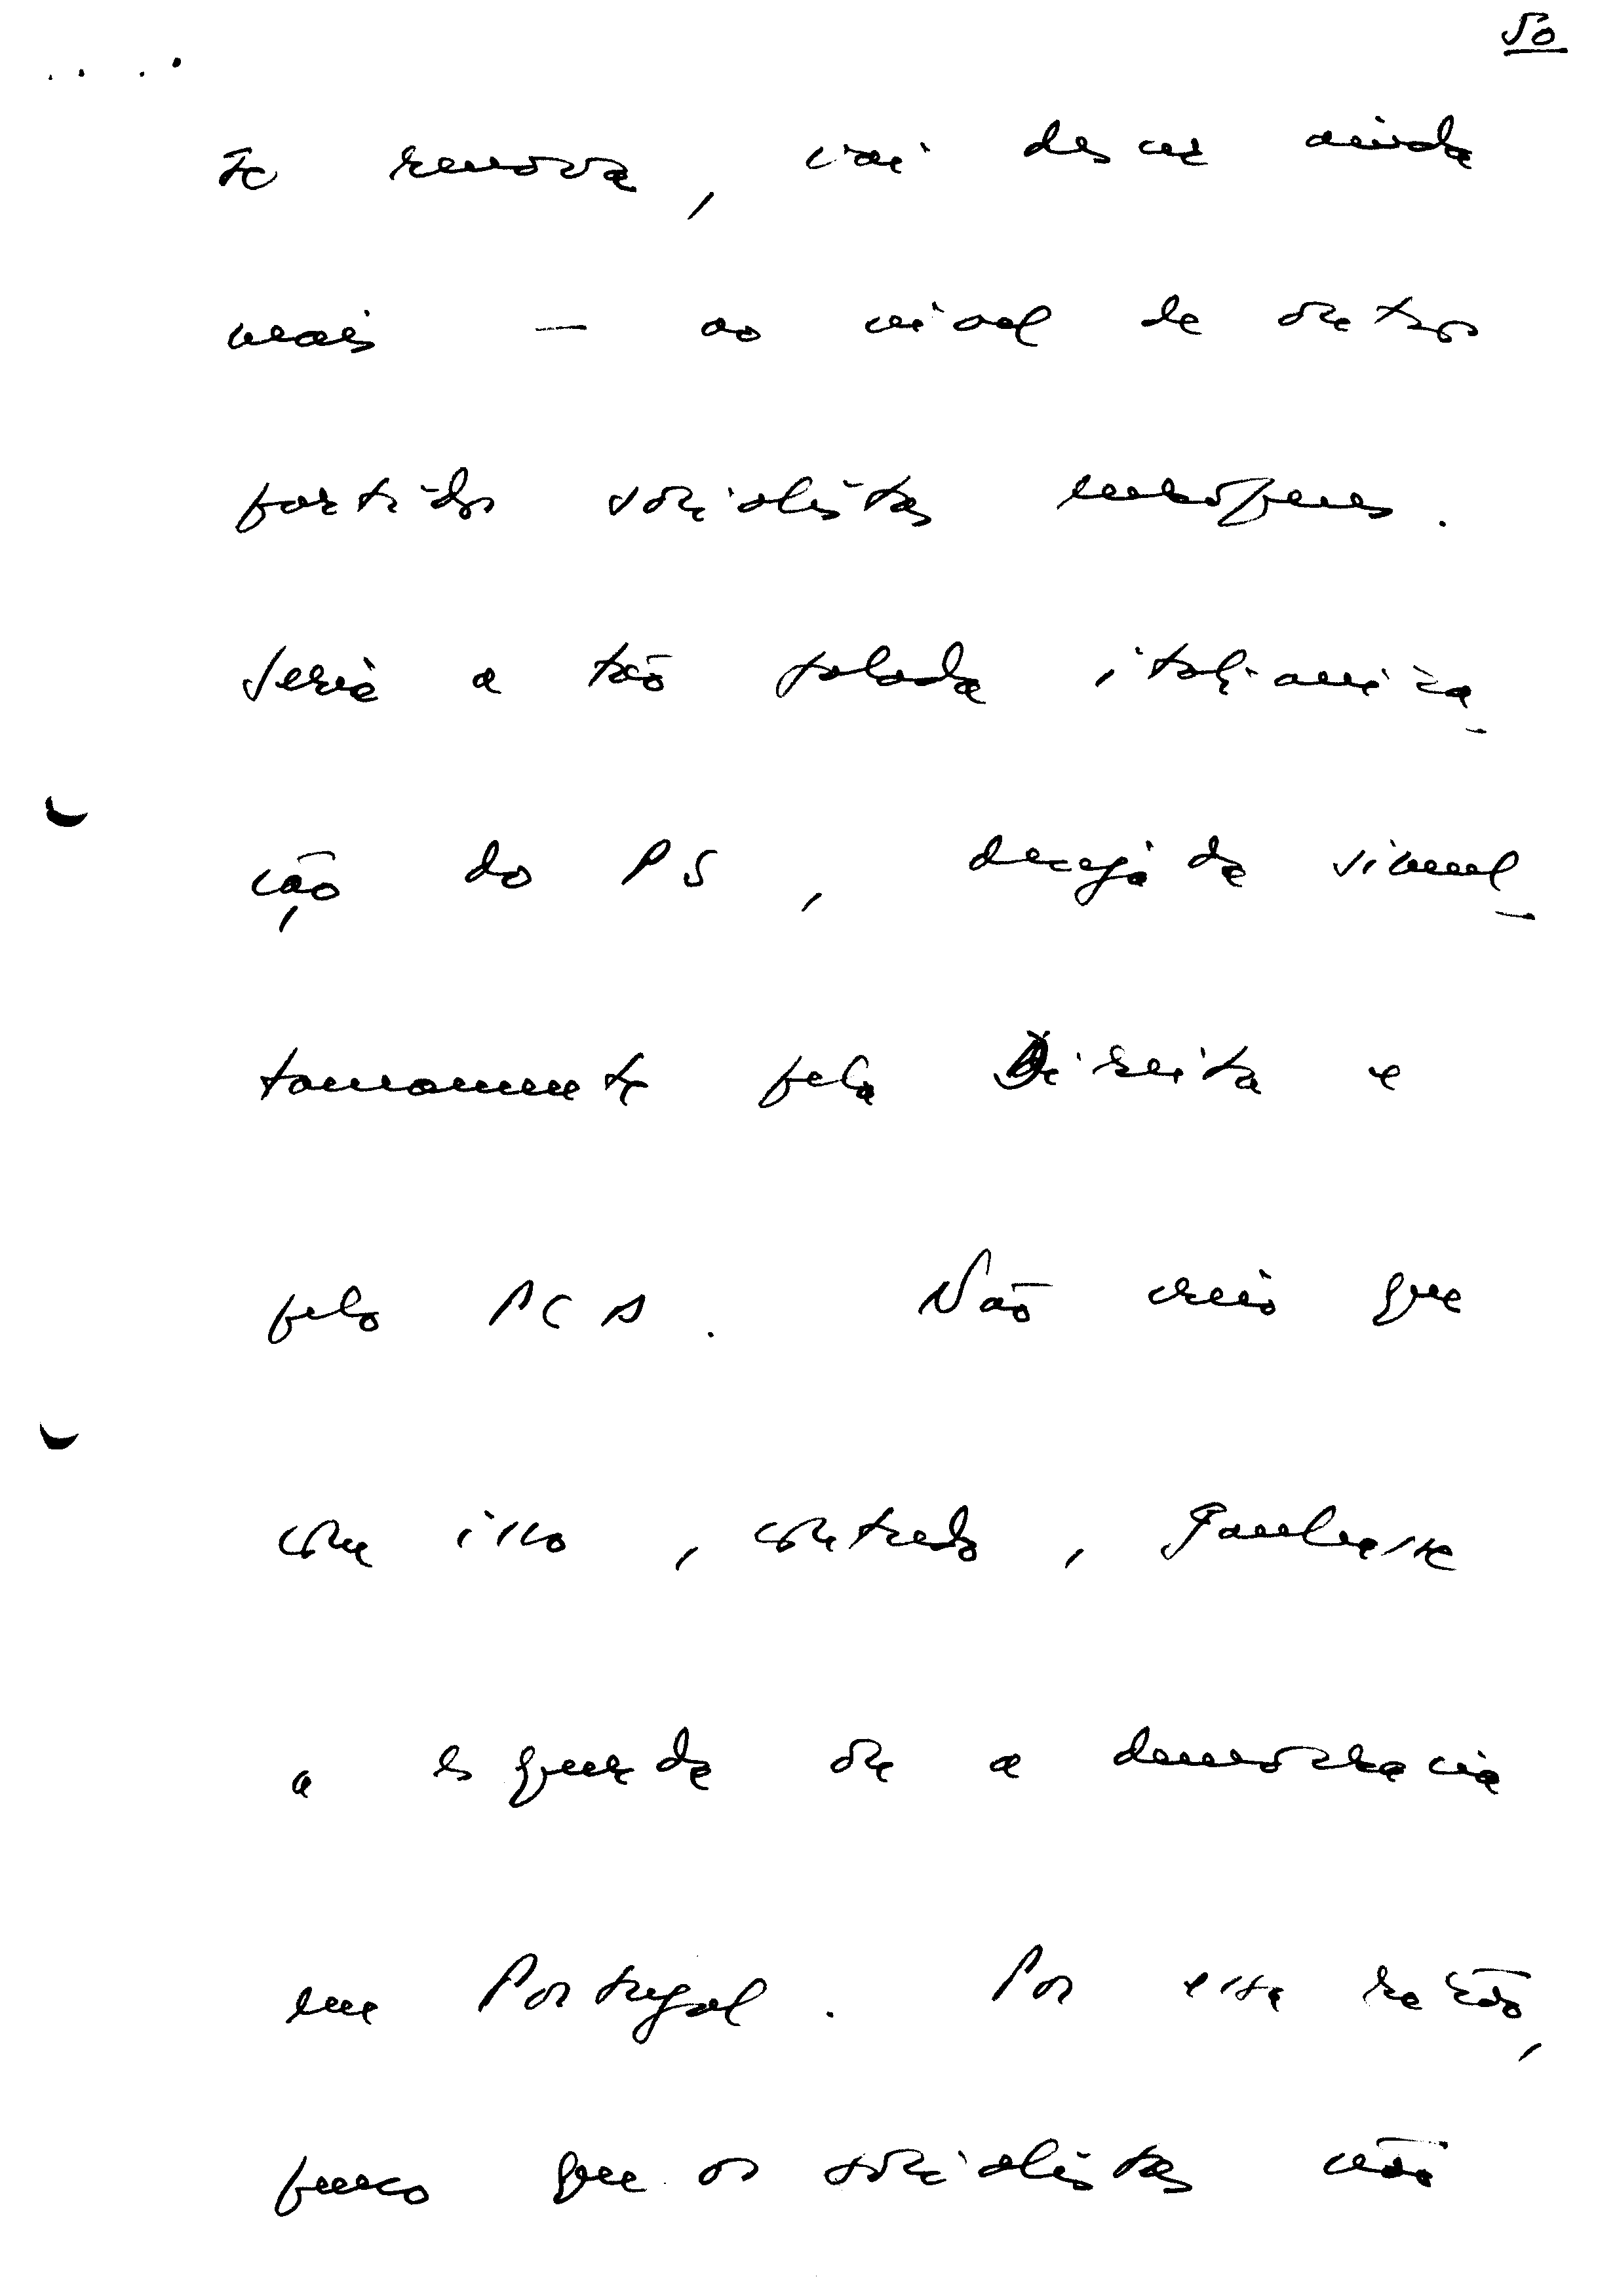 50
se renova, vai descer ainda
mais — ao nível de outros
partidos socialistas europeus.
Seria a tão falada italianiza-
ção do PS, desejada simul-
taneamente pela Direita e
pelo PCP. Não creio que
com isso, contudo, ganhasse
a esquerda ou a democracia
em Portugal. Por essa razão,
penso que os socialistas não